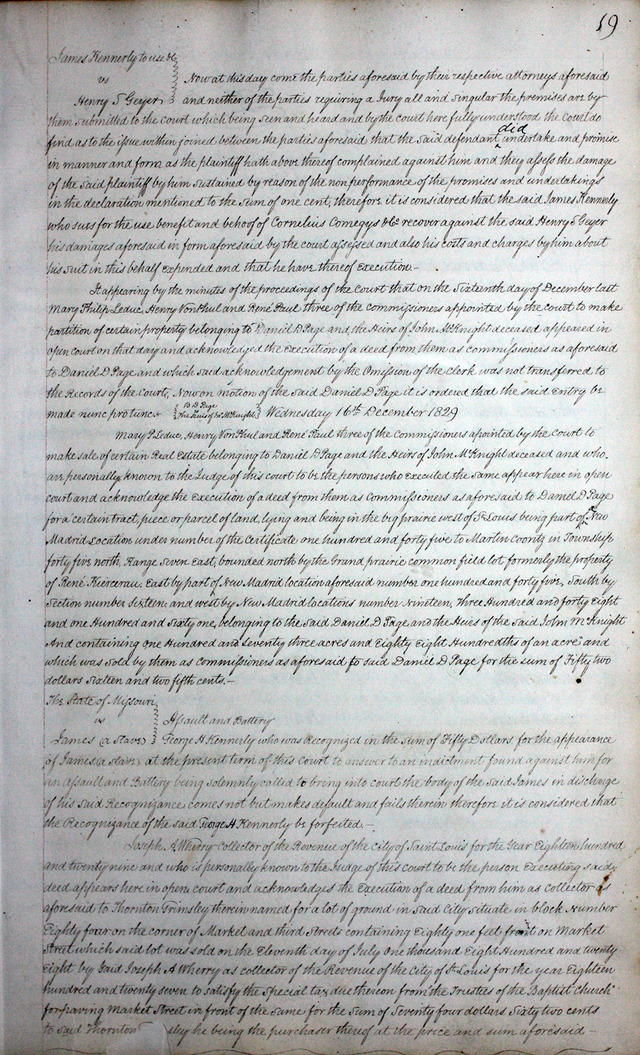 19
James Kennerly to use &c
vs
Now at this day come the parties aforesaid by their respective attorneys aforesaid
Henry S Geyer
and neither of the parties requiring a Jury all and singular the premises are by
them submitted to the court which being seen and heard and by the court here fully understood the Court do
find as to the issue within joined between the parties aforesaid that the said defendant did undertake and promise
in manner and form as the plaintiff hath above thereof complained against him and they assess the damage
of the said plaintiff by him sustained by reason of the nonperformance of the promises and undertakings
in the declaration mentioned to the sum of one cent, therefore it is considered that the said James Kennerly
who sues for the use benefit and behoof of Cornelius Comegys &Co recover against the said Henry S Geyer
his damages aforesaid in form aforesaid by the court assessed and also his costs and charges by him about
his suit in this behalf expended and that he have thereof execution -
It appearing by the minutes of the proceedings of the Court that on the Sixteenth day of December last
Mary Philip Leduc, Henry Von Phul and René Paul three of the commissioners appointed by the court to make
partition of certain property belonging to Daniel D Page and the Heirs of John McKnight deceased appeared in
open court on that day and acknowledged the Execution of a deed from them as commissioners as aforesaid
to Daniel D Page and which said acknowledgement by the Omission of the clerk was not transferred to
the Records of the Court, Now on motion of the said Daniel D Page it is ordered that the said Entry be
made nunc pro tunc
D D Page
Wednesday 16th December 1829
Mary P Leduc, Henry Von Phul and René Paul three of the Commissioners apointed by the court to
make sale of certain Real Estate belonging to Daniel D Page and the Heirs of John McKnight deceased and who
are personally known to the Judge of this court to be the persons who executed the same appear here in open
court and acknowledge the Execution of a deed from them as Commissioners as aforesaid to Daniel D Page
for a certain tract, piece or parcel of land, lying and being in the big prairie west of St Louis being part of New
Madrid Location under number of the Certificate one hundred and forty five to Martin Coontz in Township
forty five north, Range Seven East, bounded north by the Grand prairie common field lot formerly the property
of René Kiercerau, East by part of New Madrid location aforesaid number one hundred and forty five, South by
Section number Sixteen, and west by New Madrid locations number Nineteen, three Hundred and forty Eight
and one Hundred and Sixty one, belonging to the Said Daniel D Page and the Heirs of the Said John McKnight
And containing one Hundred and seventy three acres and Eighty Eight Hundredths of an acre and
which was sold by them as Commissioners as aforesaid to said Daniel D Page for the sum of Fifty two
dollars Sixteen and two fifth cents.-
The State of Missouri
vs
Assault and Battery
James (a Slave)
George H Kennerly who was Recognized in the sum of Fifty Dollars for the appearance
of James (a slave) at the present term of this court to answer to an indictment found against him for
an Assault and Battery being solemnly called to bring into court the body of the Said James in discharge
of his Said Recognizance comes not but makes default and fails therein therefore it is considered that
the Recognizance of the said George H Kennerly be forfeited.-
Joseph A Wherry collector of the Revenue of the City of Saint Louis for the Year Eighteen hundred
and twenty nine and who is personally known to the Judge of this court to be the person Executing said
deed appears here in open court and acknowledges the Execution of a deed from him as collector as
aforesaid to Thornton Grimsley therein named for a lot of ground in Said City situate in block Number
Eighty four on the corner of Market and third Streets containing Eighty one feet front on Market
Street which said lot was sold on the Eleventh day of July One thousand Eight Hundred and twenty
Eight by Said Joseph A Wherry as collector of the Revenue of the City of St Louis for the year Eighteen
hundred and twenty seven to satisfy the Special tax due thereon from the Trustees of the Baptist church
for paving Market Street in front of the same for the Sum of Seventy four dollars Sixty two cents
to said Thornton sley he being the purchaser thereof at the price and sum aforesaid -